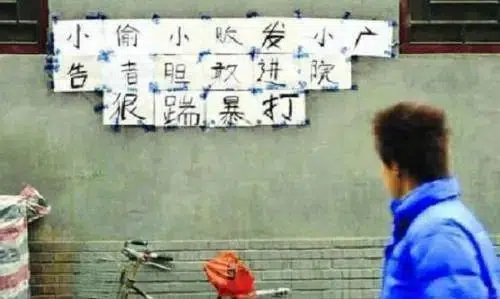 小偷小贩发小广
告者胆敢进院
狠踹暴打